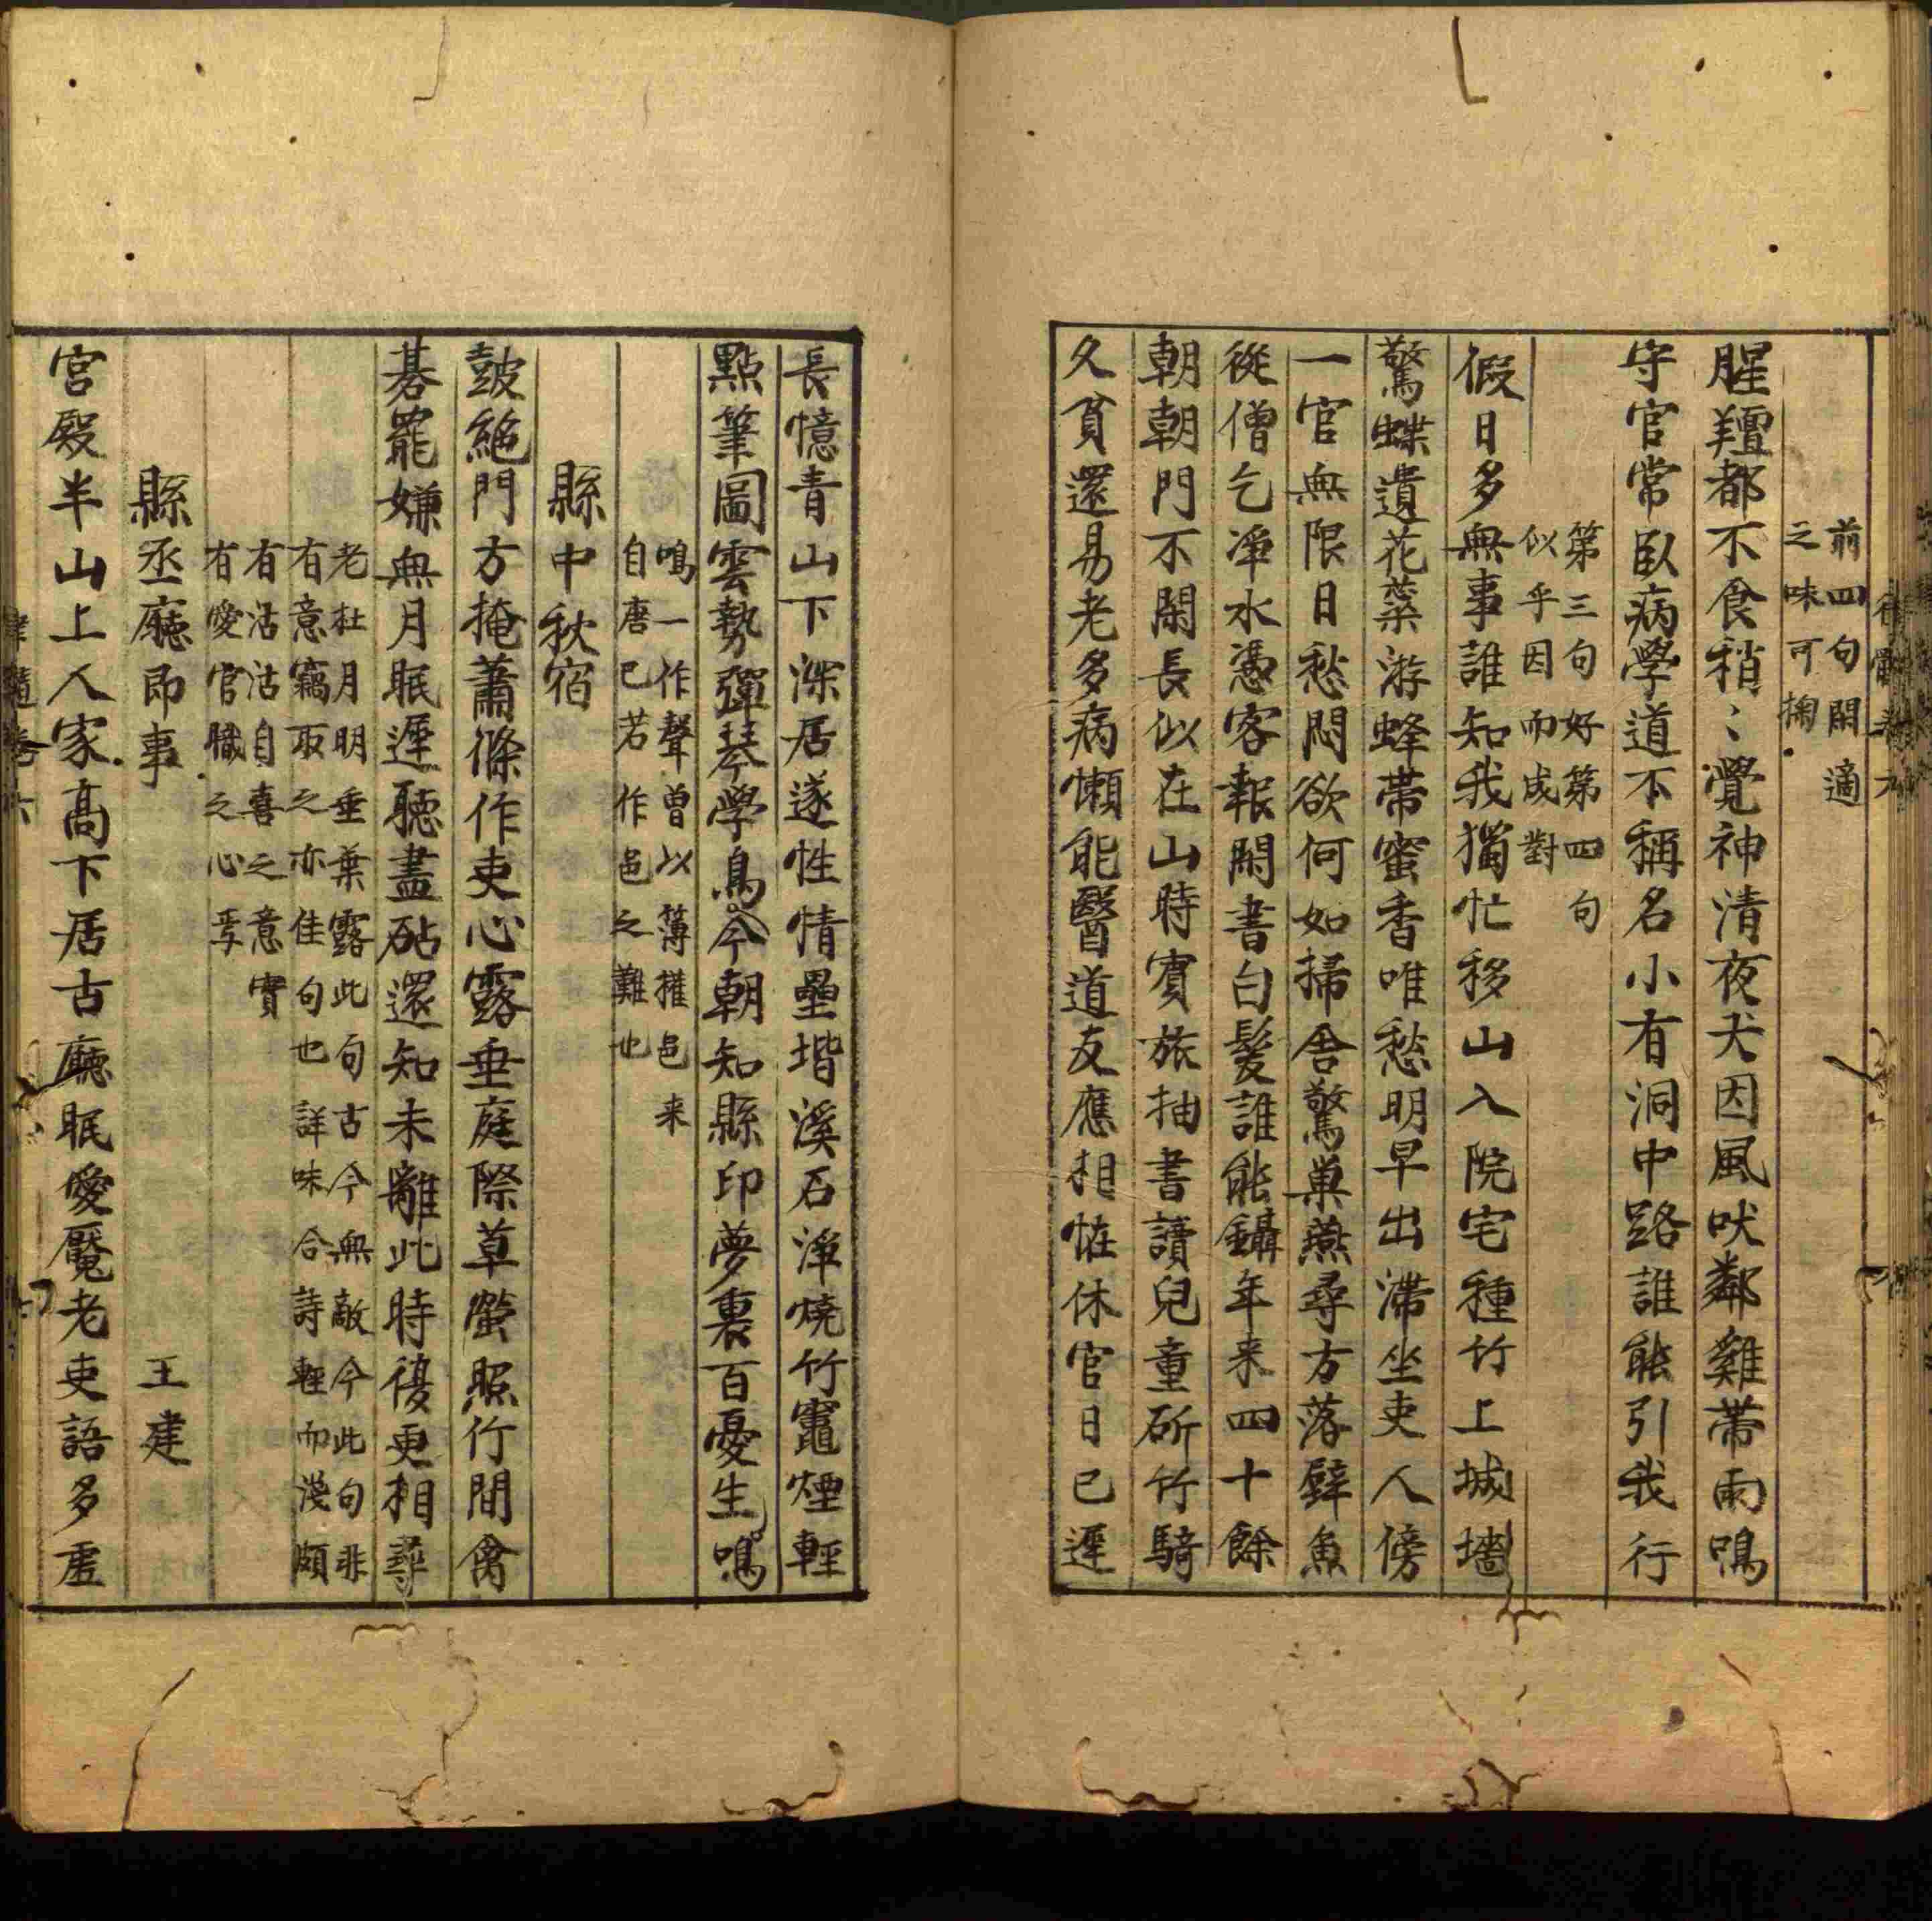 前四句閑適
之味可掬
腥羶都不食稍〻覺神清夜犬因風吠鄰雞帶雨鳴
守官常臥病學道不稱名小有洞中路誰能引我行
第三句好第四句
似乎因而成對
假日多無事誰知我獨忙移山入院宅種竹上城墻
驚蝶遺花蘂游蜂帶蜜香唯愁明早出滯坐吏人傍
一官無限日愁悶欲何如掃舍驚巢燕尋方落壁魚
從僧乞凈水憑客報閑書白髮誰能鑷年来四十餘
朝朝門不閑長似在山時賓旅抽書讀兒童斫竹騎
久貧還易老多病懶能醫道友應相恠休官日已遲
長憶青山下深居遂性情壘堦溪石淨燒竹竈煙輕
點筆圖雲勢彈琴學鳥今朝知縣印夢裏百憂生鳴
鳴一作聲曾以簿攉邑来
自唐已若作邑之難也
縣中秋宿
鼓絕門方掩蕭條作吏心露垂庭際草螢照竹間禽
碁罷嫌無月眠遲聽盡砧還知未離此時復更相尋
老杜月明垂葉露此句古今無敵今此句非
有意竊取之亦佳句也詳味合詩輕而淺頗
有沾沾自喜之意實
有愛官職之心焉
縣丞廳即事 王建
宮殿半山上人家高下居古廳眠愛魘老吏語多虛
律髓卷六